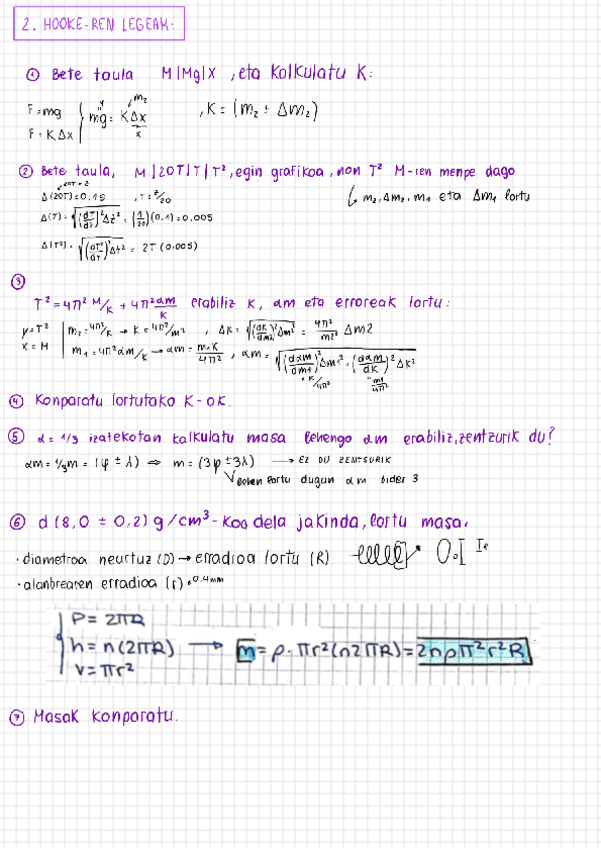 2. HOOKE-REN LEGEAK:
① Bete taula M|Mg|X, eta kalkulatu K:
m₂
F=mg
y
mg = KΔx , K = (m₂ ± Δm₂)
F = KΔx
x
② Bete taula, M|20T|T|T², egin grafikoa, non T² M-ren menpe dago
20T = z
Δ(20T)=0.15 , T = z/20
m₂, Δm₂, m₁ eta Δm₁ lortu
Δ(T) = √(dT/dz)²Δz² = (1/20)(0.1) = 0.005
Δ(T²) = √(dT²/dT)²Δt² = 2T (0.005)
③
T² = 4π² M/K + 4π² αm/K erabiliz K, αm eta erroreak lortu:
y=T² m₂ = 4π²/K → K = 4π²/m² , ΔK = √(dK/dm2)²Δm² = 4π²/m2² Δm2
x = M m₁ = 4π² αm/K → αm = m₁K/4π² , αm = √(dαm/dm1)²Δm1² + (dαm/dK)²ΔK²
K/4π² m1/4π²
④ Konparatu lortutako K-ak.
⑤ α = 1/3 izatekotan kalkulatu masa lehengo αm erabiliz, zentzurik du?
αm = 1/3m = (φ ± λ) ⇒ m = (3φ ± 3λ) → EZ DU ZENTSURIK
lehen lortu dugun αm bider 3
⑥ d (8,0 ± 0,2) g/cm³-koa dela jakinda, lortu masa.
· diametroa neurtuz (D) → erradioa lortu (R)
· alanbrearen erradioa (r) = 0.4mm
P = 2πR
h = n(2πR) → m = ρ · πr²(n2πR) = 2nρπ²r²R
v = πr²
⑦ Masak konparatu.